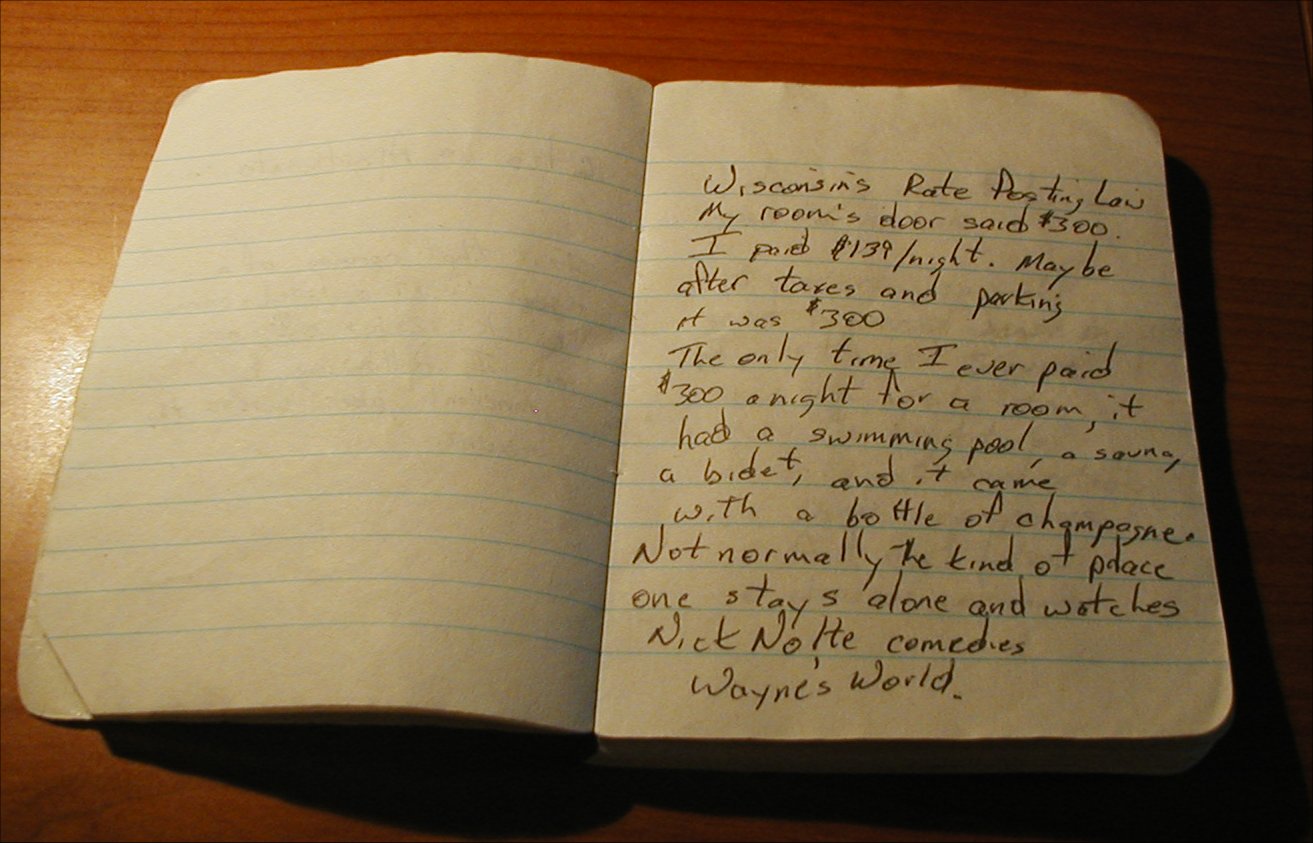 Wisconsin's Rate Posting Law
My room's door said $300.
I paid $139/night. Maybe
after taxes and parking
it was $300
The only time I ever paid
$300 a night for a room, it
had a swimming pool, a sauna,
a bidet, and it came
with a bottle of champagne.
Not normally the kind of place
one stays alone and watches
Nick Nolte comedies
Wayne's World.